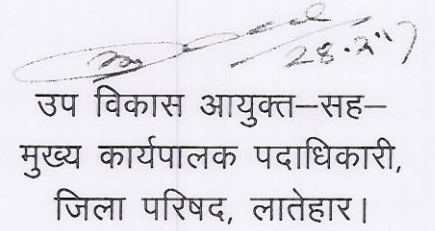 उप विकास आयुक्त–सह–
मुख्य कार्यपालक पदाधिकारी,
जिला परिषद, लातेहार।